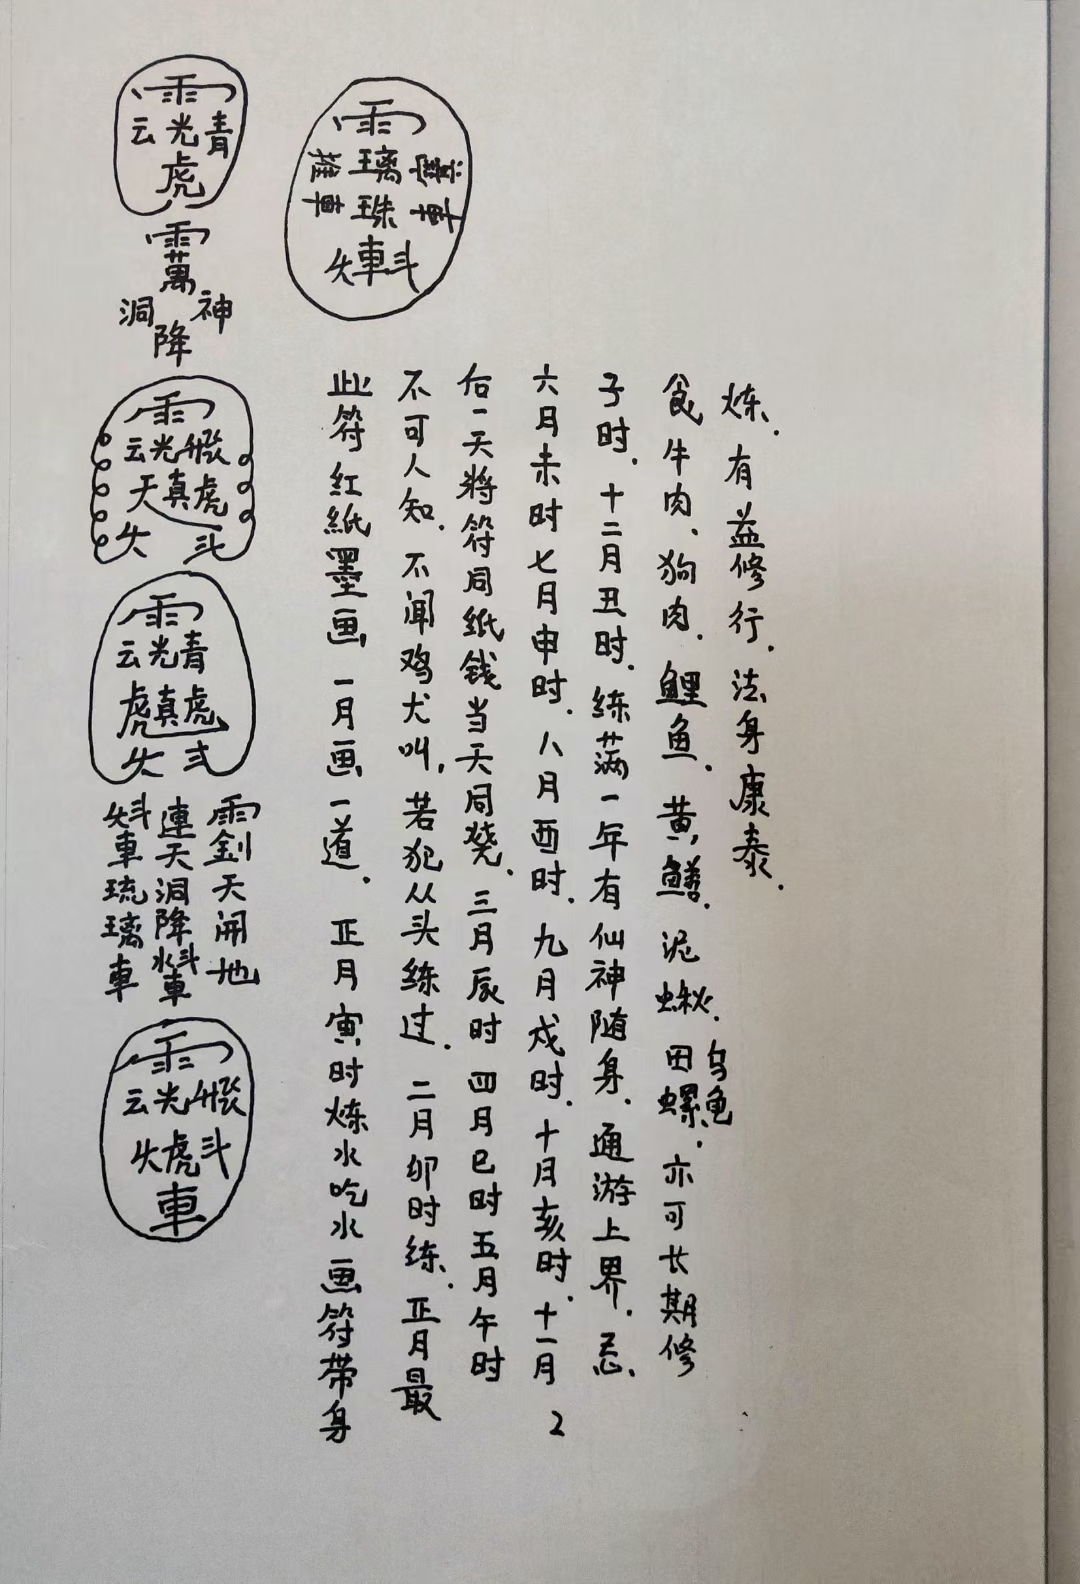 雨
云光青
虎
雨
萬
洞 神
降
雨
云光
天真虎
斗
雨
云光青
虎真虎
斗車琉璃車
連天洞降斗車
天開地
雨
云光
虎斗
車
雨
推車 璃
珠
車斗
此符红紙墨画一月画一道.正月寅时炼水吃水画符带身
不可人知.不闻鸡犬叫,若犯从头练过.二月卯时练.正月最
后一天将符同纸钱当天同烧.三月辰时四月巳时五月午时
六月未时七月申时.八月酉时.九月戌时.十月亥时.十一月
子时.十二月丑时.练满一年有仙神随身.通游上界.忌.
食牛肉、狗肉.鲤鱼.黄鳝.泥鳅.田螺.乌龟亦可长期修
炼.有益修行.法身康泰.
2